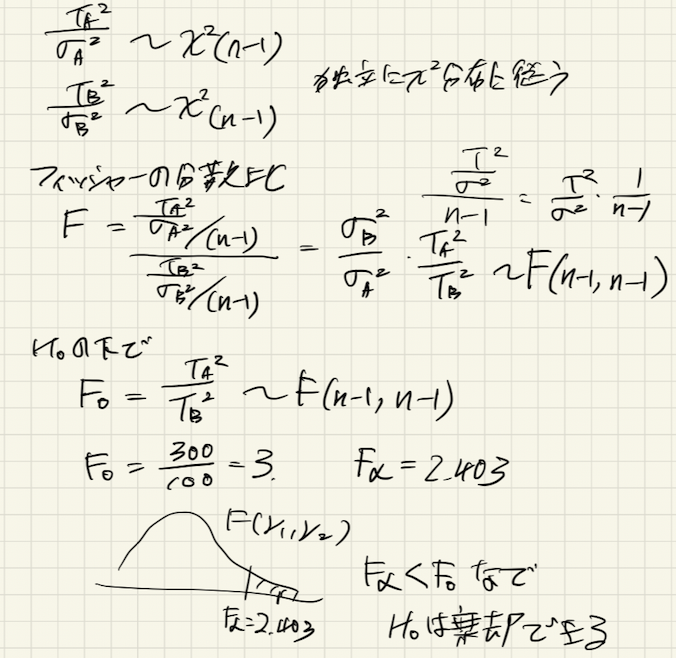 T_A²/σ_A² ~ χ²(n-1)
独立にχ²分布に従う
T_B²/σ_B² ~ χ²(n-1)
フィッシャーの分散比
(T²/σ²)/(n-1) = T²/σ² · 1/(n-1)
F = (T_A²/σ_A²/(n-1))/(T_B²/σ_B²/(n-1)) = σ_B²/σ_A² · T_A²/T_B² ~ F(n-1, n-1)
H₀の下で
F₀ = T_A²/T_B² ~ F(n-1, n-1)
F₀ = 300/100 = 3. Fα = 2.403
F(ν₁, ν₂)
Fα = 2.403
Fα < F₀ なので
H₀は棄却できる